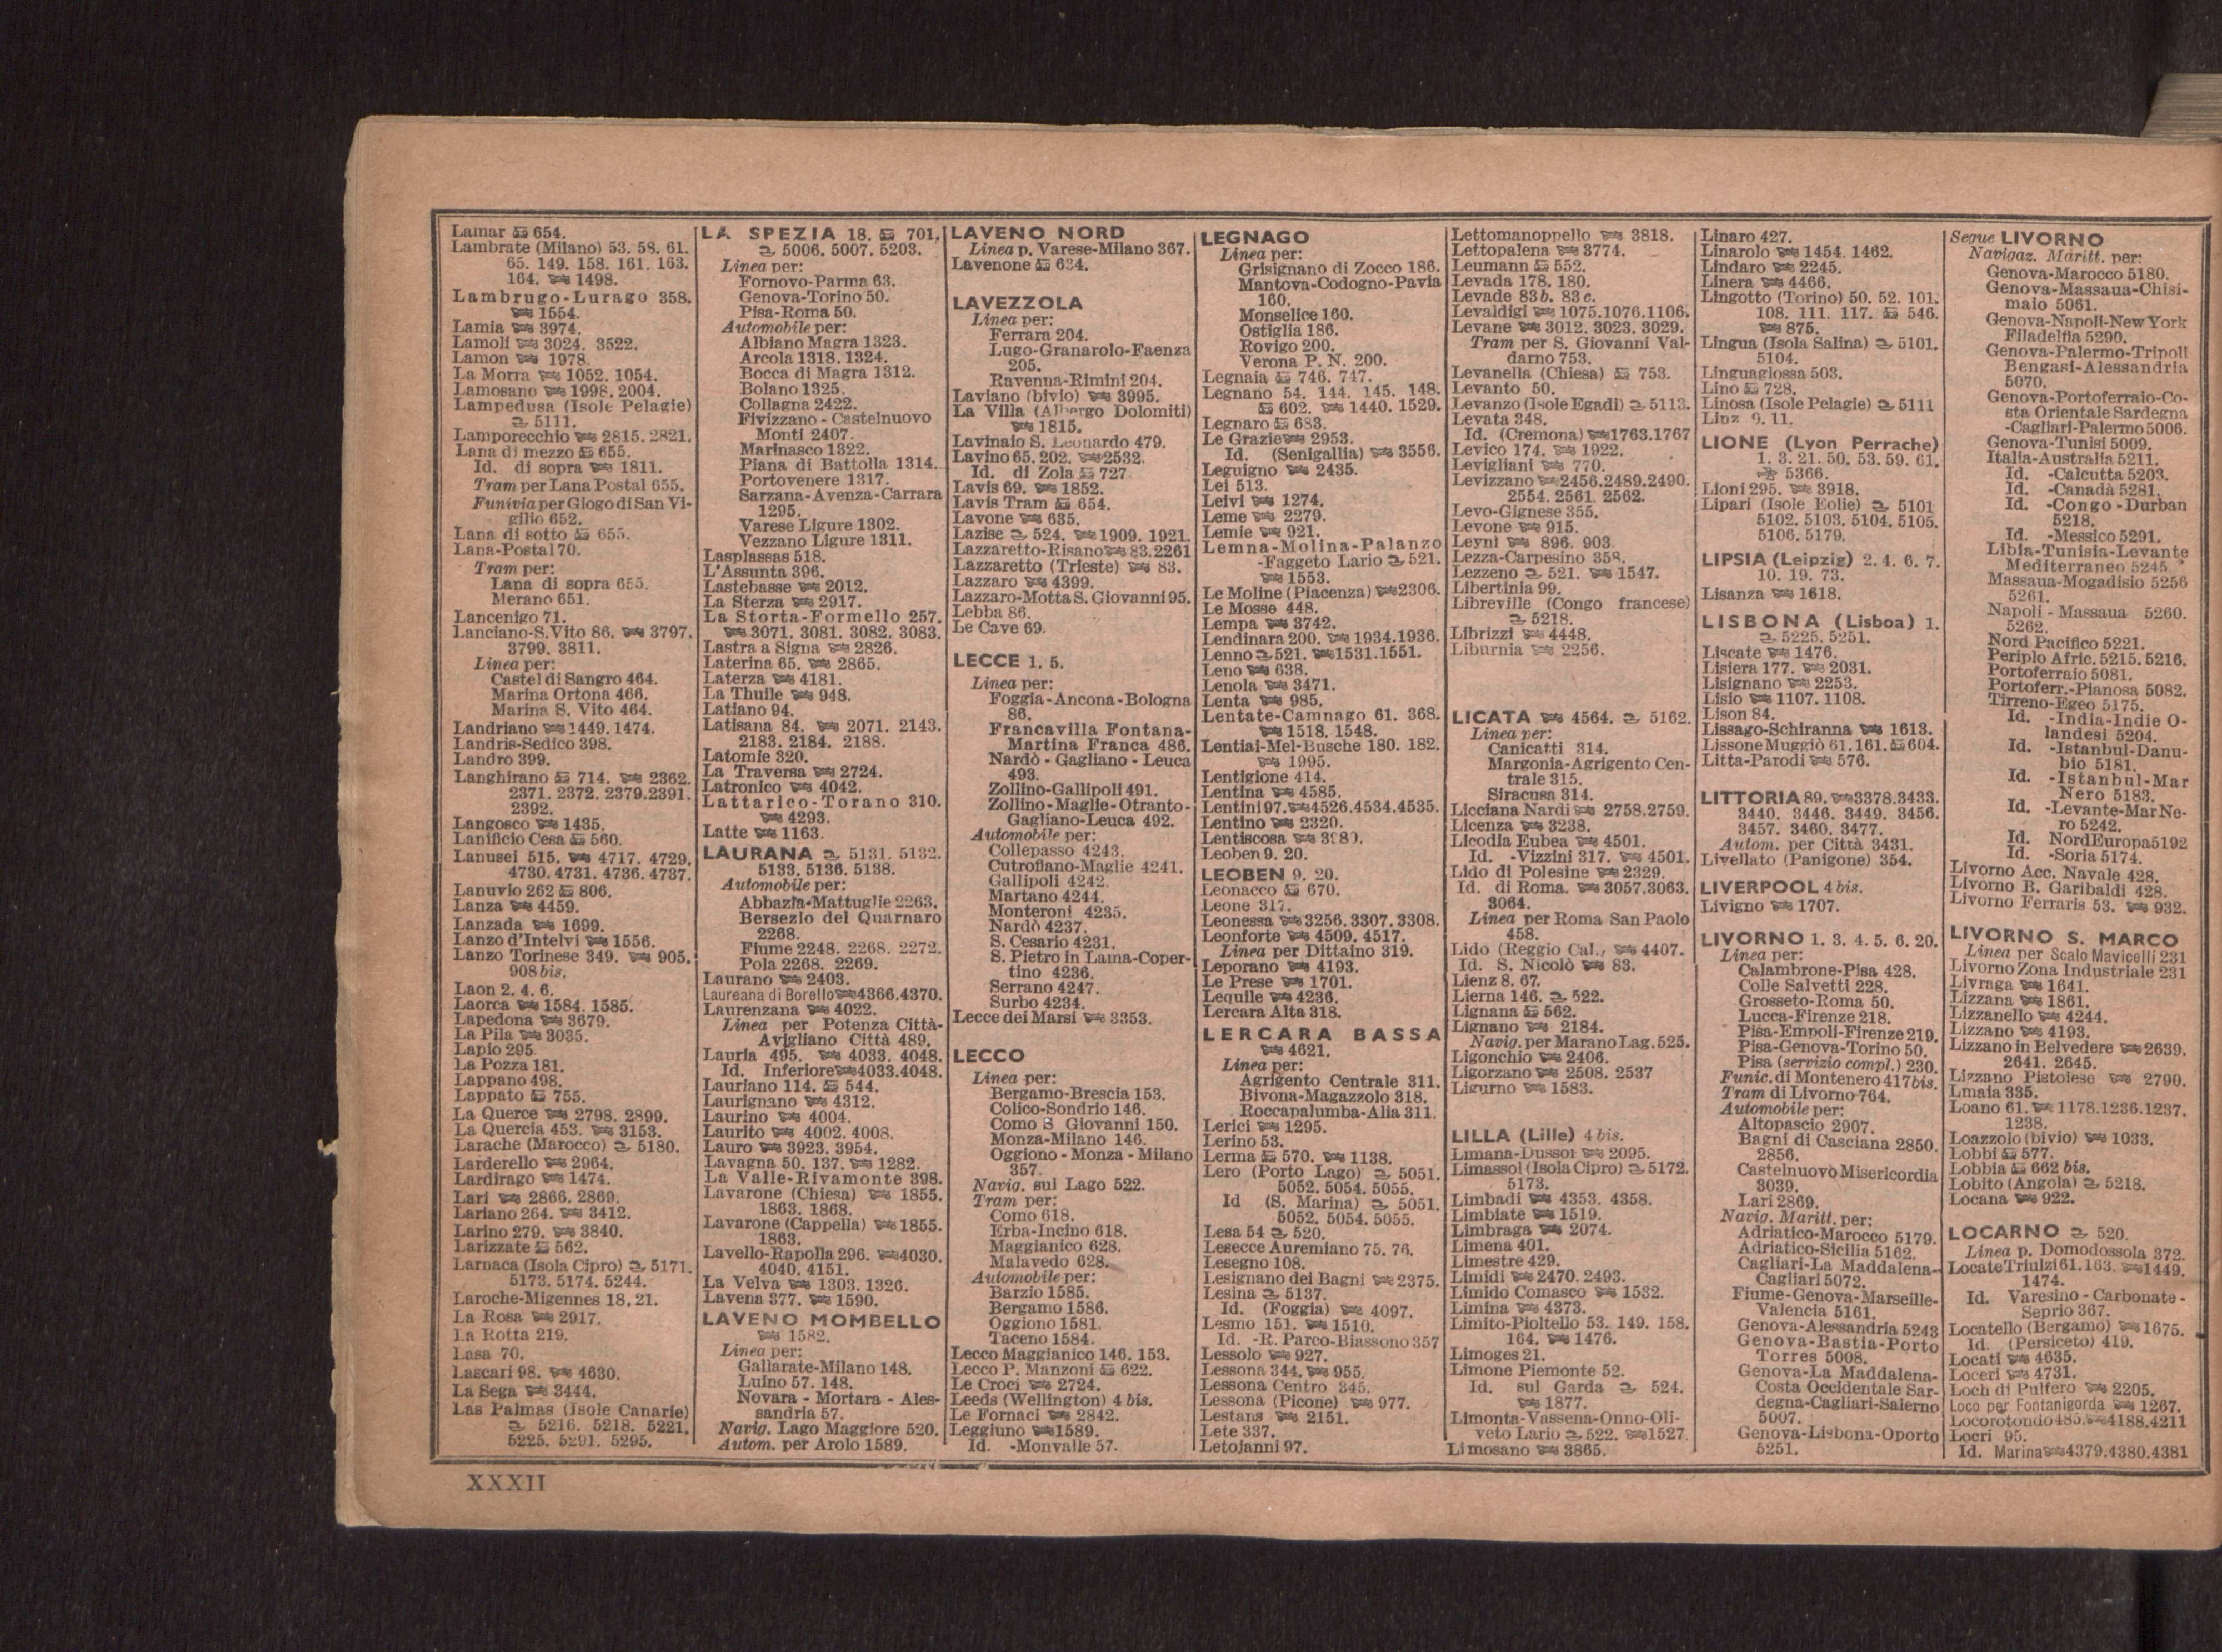 Lamar 654.
Lambrate (Milano) 53. 58. 61.
65. 149. 158. 161. 163.
164. 1498.
Lambrugo-Lurago 358.
1554.
Lamia 3974.
Lamoli 3024. 3522.
Lamon 1978.
La Morra 1052. 1054.
Lamosano 1998. 2004.
Lampedusa (Isole Pelagie)
5111.
Lamporecchio 2815. 2821.
Lana di mezzo 655.
Id. di sopra 1811.
Tram per Lana Postal 655.
Funivia per Giogo di San Vi-
gilio 652.
Lana di sotto 655.
Lana-Postal 70.
Tram per:
Lana di sopra 655.
Merano 651.
Lancenigo 71.
Lanciano-S. Vito 86. 3797.
3799. 3811.
Linea per:
Castel di Sangro 464.
Marina Ortona 466.
Marina S. Vito 464.
Landriano 1449. 1474.
Landris-Sedico 398.
Landro 399.
Langhirano 714. 2362.
2371. 2372. 2379. 2391.
2392.
Langosco 1435.
Lanificio Cesa 560.
Lanusei 515. 4717. 4729.
4730. 4731. 4736. 4737.
Lanuvio 262 806.
Lanza 4459.
Lanzada 1699.
Lanzo d'Intelvi 1556.
Lanzo Torinese 349. 905.
908 bis.
Laon 2. 4. 6.
Laorca 1584. 1585.
Lapedona 3679.
La Pila 3035.
Lapio 295
La Pozza 181.
Lappano 498.
Lappato 755.
La Querce 2798. 2899.
La Quercia 453. 3153.
Larache (Marocco) 5180.
Larderello 2964.
Lardirago 1474.
Lari 2866. 2869.
Lariano 264. 3412.
Larino 279. 3840.
Larizzate 562.
Larnaca (Isola Cipro) 5171.
5173. 5174. 5244.
Laroche-Migennes 18. 21.
La Rosa 2917.
La Rotta 219.
Lasa 70.
Lascari 98. 4630.
La Sega 3444.
Las Palmas (Isole Canarie)
5216. 5218. 5221.
5225. 5291. 5295.
LA SPEZIA 18. 701.
5006. 5007. 5203.
Linea per:
Fornovo-Parma 63.
Genova-Torino 50.
Pisa-Roma 50.
Automobile per:
Albiano Magra 1323.
Arcola 1318. 1324.
Bocca di Magra 1312.
Bolano 1325.
Collagna 2422.
Fivizzano - Castelnuovo
Monti 2407.
Marinasco 1322.
Piana di Battolla 1314.
Portovenere 1317.
Sarzana-Avenza-Carrara
1295.
Varese Ligure 1302.
Vezzano Ligure 1311.
Lasplassas 518.
L'Assunta 396.
Lastebasse 2012.
La Sterza 2917.
La Storta-Formello 257.
3071. 3081. 3082. 3083.
Lastra a Signa 2826.
Laterina 65. 2865.
Laterza 4181.
La Thuile 948.
Latiano 94.
Latisana 84. 2071. 2143.
2183. 2184. 2188.
Latomie 320.
La Traversa 2724.
Latronico 4042.
Lattarico-Torano 310.
4293.
Latte 1163.
LAURANA 5131. 5132.
5133. 5136. 5138.
Automobile per:
Abbazia-Mattuglie 2263.
Bersezio del Quarnaro
2268.
Fiume 2248. 2268. 2272.
Pola 2268. 2269.
Laurano 2403.
Laureana di Borello 4366.4370.
Laurenzana 4022.
Linea per Potenza Città-
Avigliano Città 489.
Lauria 495. 4033. 4048.
Id. Inferiore 4033.4048.
Lauriano 114. 544.
Laurignano 4312.
Laurino 4004.
Laurito 4002. 4008.
Lauro 3923. 3954.
Lavagna 50. 137. 1282.
La Valle-Rivamonte 398.
Lavarone (Chiesa) 1855.
1863. 1868.
Lavarone (Cappella) 1855.
1863.
Lavello-Rapolla 296. 4030.
4040. 4151.
La Velva 1303. 1326.
Lavena 377. 1590.
LAVENO MOMBELLO
1582.
Linea per:
Gallarate-Milano 148.
Luino 57. 148.
Novara - Mortara - Ales-
sandria 57.
Navig. Lago Maggiore 520.
Autom. per Arolo 1589.
LAVENO NORD
Linea p. Varese-Milano 367.
Lavenone 634.
LAVEZZOLA
Linea per:
Ferrara 204.
Lugo-Granarolo-Faenza
205.
Ravenna-Rimini 204.
Laviano (bivio) 3995.
La Villa (Albergo Dolomiti)
1815.
Lavinaio S. Leonardo 479.
Lavino 65. 202. 2532.
Id. di Zola 727
Lavis 69. 1852.
Lavis Tram 654.
Lavone 635.
Lazise 524. 1909. 1921.
Lazzaretto-Risano 83.2261
Lazzaretto (Trieste) 83.
Lazzaro 4399.
Lazzaro-Motta S. Giovanni 95.
Lebba 86.
Le Cave 69.
LECCE 1. 5.
Linea per:
Foggia-Ancona-Bologna
86.
Francavilla Fontana-
Martina Franca 486.
Nardò - Gagliano - Leuca
493.
Zollino-Gallipoli 491.
Zollino-Maglie-Otranto-
Gagliano-Leuca 492.
Automobile per:
Collepasso 4243.
Cutrofiano-Maglie 4241.
Gallipoli 4242.
Martano 4244.
Monteroni 4235.
Nardò 4237.
S. Cesario 4231.
S. Pietro in Lama-Coper-
tino 4236.
Serrano 4247.
Surbo 4234.
Lecce dei Marsi 3353.
LECCO
Linea per:
Bergamo-Brescia 153.
Colico-Sondrio 146.
Como S Giovanni 150.
Monza-Milano 146.
Oggiono - Monza - Milano
357.
Navig. sul Lago 522.
Tram per:
Como 618.
Erba-Incino 618.
Maggianico 628.
Malavedo 628.
Automobile per:
Barzio 1585.
Bergamo 1586.
Oggiono 1581.
Taceno 1584.
Lecco Maggianico 146. 153.
Lecco P. Manzoni 622.
Le Croci 2724.
Leeds (Wellington) 4 bis.
Le Fornaci 2842.
Leggiuno 1589.
Id. -Monvalle 57.
LEGNAGO
Linea per:
Grisignano di Zocco 186.
Mantova-Codogno-Pavia
160.
Monselice 160.
Ostiglia 186.
Rovigo 200.
Verona P. N. 200.
Legnaia 746. 747.
Legnano 54. 144. 145. 148.
602. 1440. 1529.
Legnaro 683.
Le Grazie 2953.
Id. (Senigallia) 3556.
Leguigno 2435.
Lei 513.
Leivi 1274.
Leme 2279.
Lemie 921.
Lemna-Molina-Palanzo
-Faggeto Lario 521.
1553.
Le Moline (Piacenza) 2306.
Le Mosse 448.
Lempa 3742.
Lendinara 200. 1934.1936.
Lenno 521. 1531.1551.
Leno 638.
Lenola 3471.
Lenta 985.
Lentate-Camnago 61. 368.
1518. 1548.
Lentiai-Mel-Busche 180. 182.
1995.
Lentigione 414.
Lentina 4585.
Lentini 97. 4526.4534.4535.
Lentino 2320.
Lentiscosa
Leoben 9. 20.
LEOBEN 9. 20.
Leonacco 670.
Leone 317.
Leonessa 3256. 3307. 3308.
Leonforte 4509. 4517.
Linea per Dittaino 319.
Leporano 4193.
Le Prese 1701.
Lequile 4236.
Lercara Alta 318.
LERCARA BASSA
4621.
Linea per:
Agrigento Centrale 311.
Bivona-Magazzolo 318.
Roccapalumba-Alia 311.
Lerici 1295.
Lerino 53.
Lerma 570. 1138.
Lero (Porto Lago) 5051.
5052. 5054. 5055.
Id (S. Marina) 5051.
5052. 5054. 5055.
Lesa 54 520.
Lesecce Auremiano 75. 76.
Lesegno 108.
Lesignano dei Bagni 2375.
Lesina 5137.
Id. (Foggia) 4097.
Lesmo 151. 1510.
Id. -R. Parco-Biassono 357
Lessolo 927.
Lessona 344. 955.
Lessona Centro 345.
Lessona (Picone) 977.
Lestans 2151.
Lete 337.
Letojanni 97.
Lettomanoppello 3818.
Lettopalena 3774.
Leumann 552.
Levada 178. 180.
Levade 83b. 83c.
Levaldigi 1075.1076.1106.
Levane 3012. 3023. 3029.
Tram per S. Giovanni Val-
darno 753.
Levanella (Chiesa) 753.
Levanto 50.
Levanzo (Isole Egadi) 5113.
Levata 348.
Id. (Cremona) 1763.1767
Levico 174. 1922.
Levigliani 770.
Levizzano 2456.2489.2490.
2554. 2561. 2562.
Levo-Gignese 355.
Levone 915.
Leyni 896. 903.
Lezza-Carpesino 358.
Lezzeno 521. 1547.
Libertinia 99.
Libreville (Congo francese)
5218.
Librizzi 4448.
Liburnia 2256.
LICATA 4564. 5162.
Linea per:
Canicatti 314.
Margonia-Agrigento Cen-
trale 315.
Siracusa 314.
Licciana Nardi 2758.2759.
Licenza 3238.
Licodia Eubea 4501.
Id. -Vizzini 317. 4501.
Lido di Polesine 2329.
Id. di Roma. 3057.3063.
3064.
Linea per Roma San Paolo
458.
Lido (Reggio Cal., 4407.
Id. S. Nicolò 83.
Lienz 8. 67.
Lierna 146. 522.
Lignana 562.
Lignano 2184.
Navig. per Marano Lag. 525.
Ligonchio 2406.
Ligorzano 2508. 2537
Ligurno 1583.
LILLA (Lille) 4 bis.
Limana-Dussoi 2095.
Limassol (Isola Cipro) 5172.
5173.
Limbadi 4353. 4358.
Limbiate 1519.
Limbraga 2074.
Limena 401.
Limestre 429.
Limidi 2470. 2493.
Limido Comasco 1532.
Limina 4373.
Limito-Pioltello 53. 149. 158.
164. 1476.
Limoges 21.
Limone Piemonte 52.
Id. sul Garda 524.
1877.
Limonta-Vassena-Onno-Oli-
veto Lario 522. 1527.
Limosano 3865.
Linaro 427.
Linarolo 1454. 1462.
Lindaro 2245.
Linera 4466.
Lingotto (Torino) 50. 52. 101.
108. 111. 117. 546.
875.
Lingua (Isola Salina) 5101.
5104.
Linguaglossa 503.
Lino 728.
Linosa (Isole Pelagie) 5111
Linz 9. 11.
LIONE (Lyon Perrache)
1. 3. 21. 50. 53. 59. 61.
5366.
Lioni 295. 3918.
Lipari (Isole Eolie) 5101
5102. 5103. 5104. 5105.
5106. 5179.
LIPSIA (Leipzig) 2. 4. 6. 7.
10. 19. 73.
Lisanza 1618.
LISBONA (Lisboa) 1.
5225. 5251.
Liscate 1476.
Lisiera 177. 2031.
Lisignano 2253.
Lisio 1107. 1108.
Lison 84.
Lissago-Schiranna 1613.
Lissone Muggiò 61. 161. 604.
Litta-Parodi 576.
LITTORIA 89. 3378.3433.
3440. 3446. 3449. 3456.
3457. 3460. 3477.
Autom. per Città 3431.
Livellato (Panigone) 354.
LIVERPOOL 4 bis.
Livigno 1707.
LIVORNO 1. 3. 4. 5. 6. 20.
Linea per:
Calambrone-Pisa 428.
Colle Salvetti 228.
Grosseto-Roma 50.
Lucca-Firenze 218.
Pisa-Empoli-Firenze 219.
Pisa-Genova-Torino 50.
Pisa (servizio compl.) 230.
Funic. di Montenero 417 bis.
Tram di Livorno 764.
Automobile per:
Altopascio 2907.
Bagni di Casciana 2850.
2856.
Castelnuovo Misericordia
3039.
Lari 2869.
Navig. Maritt. per:
Adriatico-Marocco 5179.
Adriatico-Sicilia 5162.
Cagliari-La Maddalena-
Cagliari 5072.
Fiume-Genova-Marseille-
Valencia 5161.
Genova-Alessandria 5243
Genova-Bastia-Porto
Torres 5008.
Genova-La Maddalena-
Costa Occidentale Sar-
degna-Cagliari-Salerno
5007.
Genova-Lisbona-Oporto
5251.
Segue LIVORNO
Navigaz. Maritt. per:
Genova-Marocco 5180.
Genova-Massaua-Chisi-
maio 5061.
Genova-Napoli-New York
Filadelfia 5290.
Genova-Palermo-Tripoli
Bengasi-Alessandria
5070.
Genova-Portoferraio-Co-
sta Orientale Sardegna
-Cagliari-Palermo 5006.
Genova-Tunisi 5009.
Italia-Australia 5211.
Id. -Calcutta 5203.
Id. -Canadà 5281.
Id. -Congo -Durban
5218.
Id. -Messico 5291.
Libia-Tunisia-Levante
Mediterraneo 5245
Massaua-Mogadisio 5256
5261.
Napoli - Massaua 5260.
5262.
Nord Pacifico 5221.
Periplo Afric. 5215. 5216.
Portoferraio 5081.
Portoferr.-Pianosa 5082.
Tirreno-Egeo 5175.
Id. -India-Indie O-
landesi 5204.
Id. -Istanbul-Danu-
bio 5181.
Id. -Istanbul-Mar
Nero 5183.
Id. -Levante-Mar Ne-
ro 5242.
Id. Nord Europa 5192
Id. -Soria 5174.
Livorno Acc. Navale 428.
Livorno B. Garibaldi 428.
Livorno Ferraris 53. 932.
LIVORNO S. MARCO
Linea per Scalo Mavicelli 231
Livorno Zona Industriale 231
Livraga 1641.
Lizzana 1861.
Lizzanello 4244.
Lizzano 4193.
Lizzano in Belvedere 2639.
2641. 2645.
Lizzano Pistoiese 2790.
Lmaia 335.
Loano 61. 1178.1236.1237.
1238.
Loazzolo (bivio) 1033.
Lobbi 577.
Lobbia 662 bis.
Lobito (Angola) 5218.
Locana 922.
LOCARNO 520.
Linea p. Domodossola 372.
Locate Triulzi 61. 163. 1449.
1474.
Id. Varesino - Carbonate -
Seprio 367.
Locatello (Bergamo) 1675.
Id. (Persiceto) 419.
Locati 4635.
Loceri 4731.
Loch di Pulfero 2205.
Loco per Fontanigorda 1267.
Locorotondo 485. 4188.4211
Locri 95.
Id. Marina 4379.4380.4381
XXXII